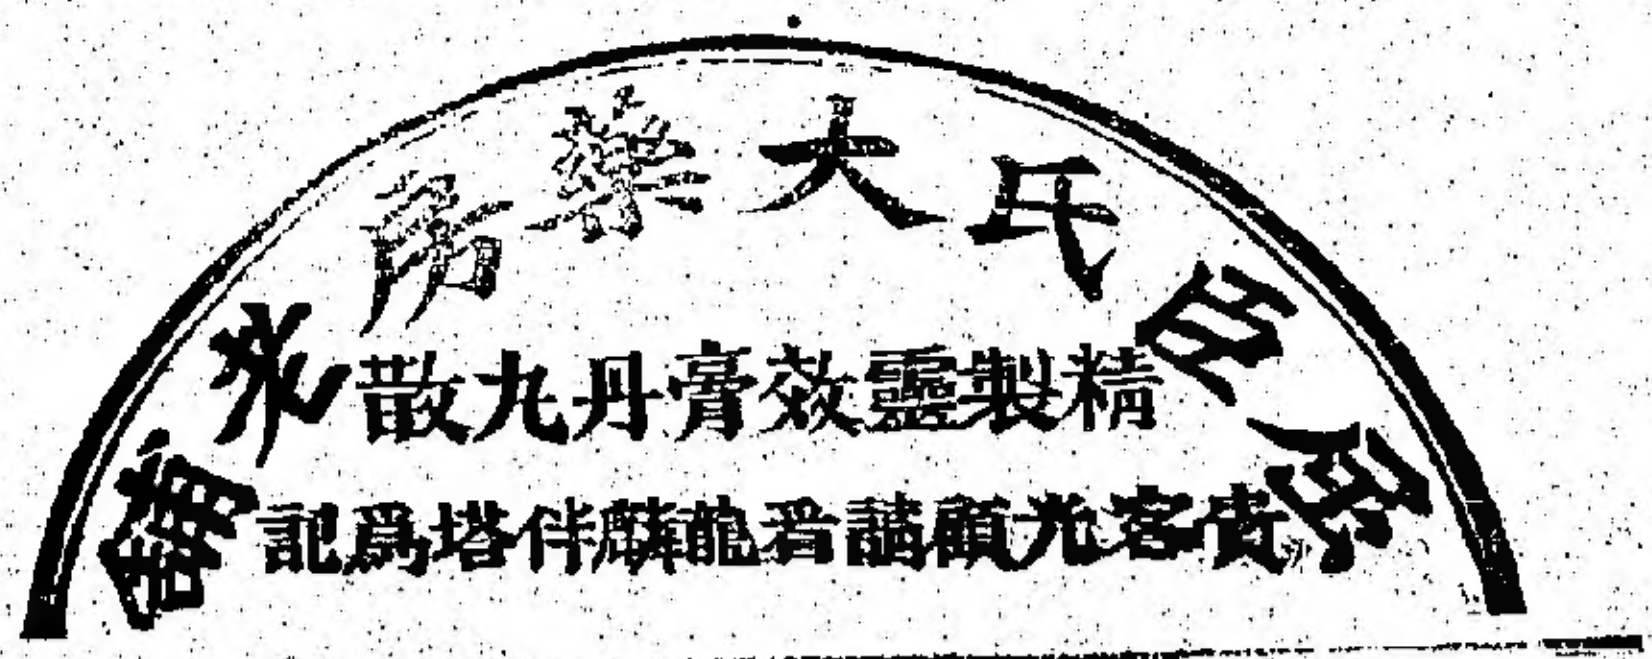 屈臣氏大藥房老鋪
精製靈效膏丹丸散
貴客光顧請看龍麟伴塔爲記